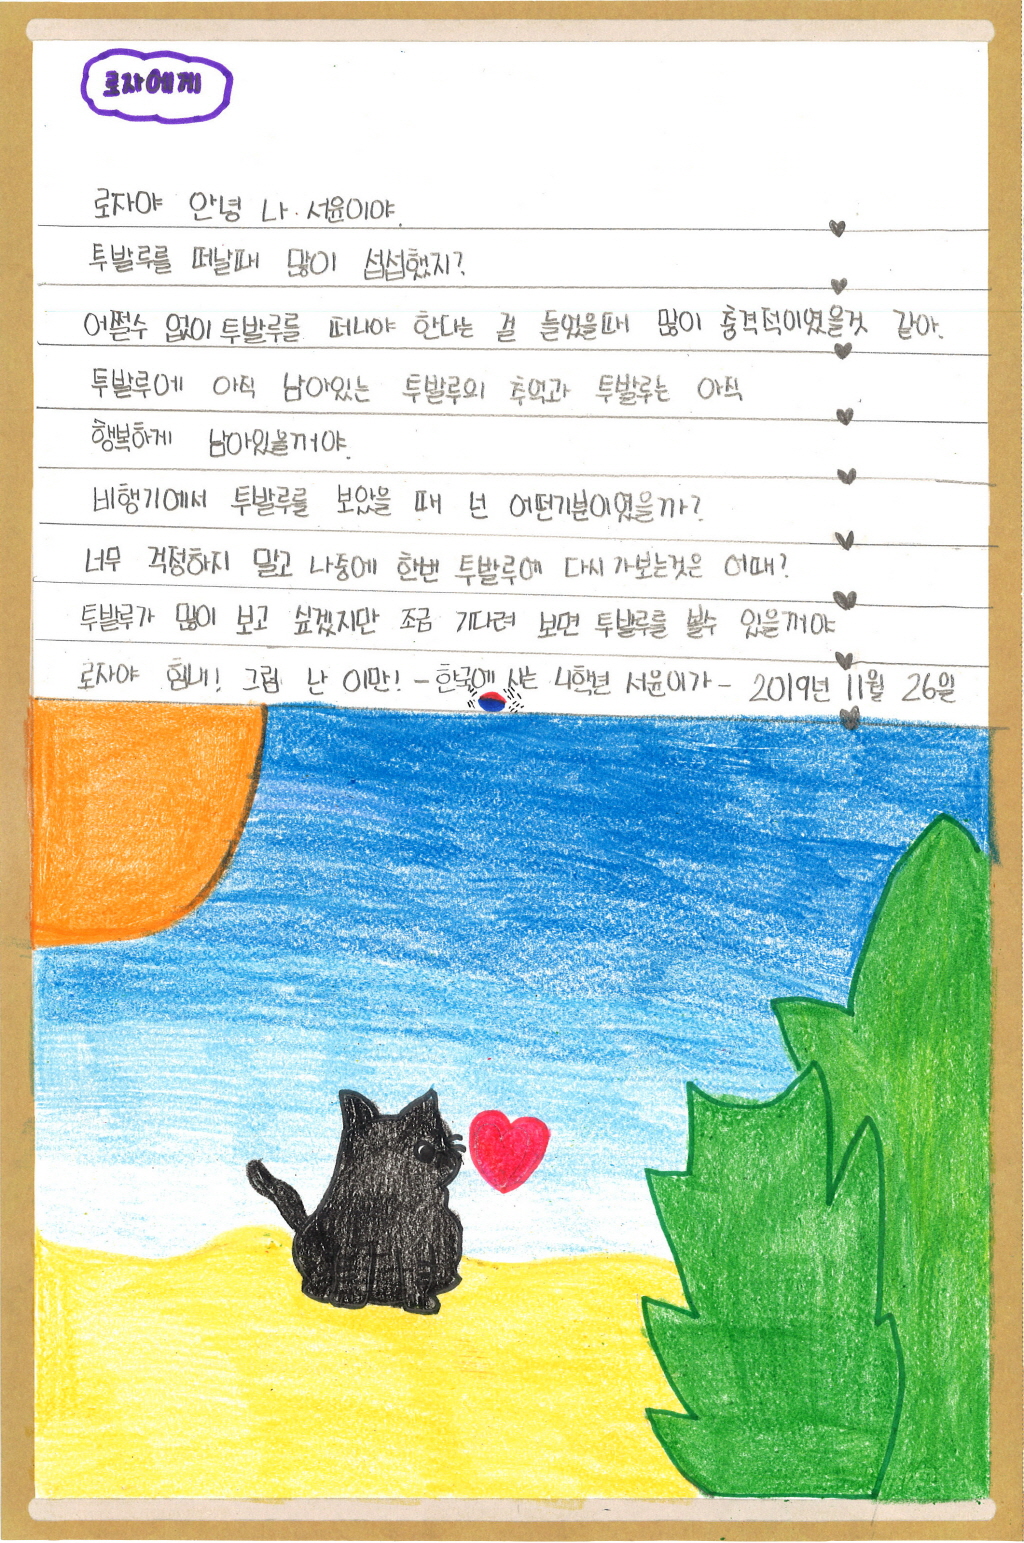 로자에게
로자야 안녕 나. 서윤이야.
투발루를 떠날때 많이 섭섭했지?
어쩔수 없이 투발루를 떠나야 한다는 걸 들었을때 많이 충격적이였을것 같아.
투발루에 아직 남아있는 투발루의 추억과 투발루는 아직
행복하게 남아있을꺼야.
비행기에서 투발루를 보았을 때 넌 어떤기분이였을까?
너무 걱정하지 말고 나중에 한번 투발루에 다시 가보는것은 어때?
투발루가 많이 보고 싶겠지만 조금 기다려 보면 투발루를 볼수 있을꺼야
로자야 힘내! 그럼 난 이만! - 한국에 사는 4학년 서윤이가 - 2019년 11월 26일